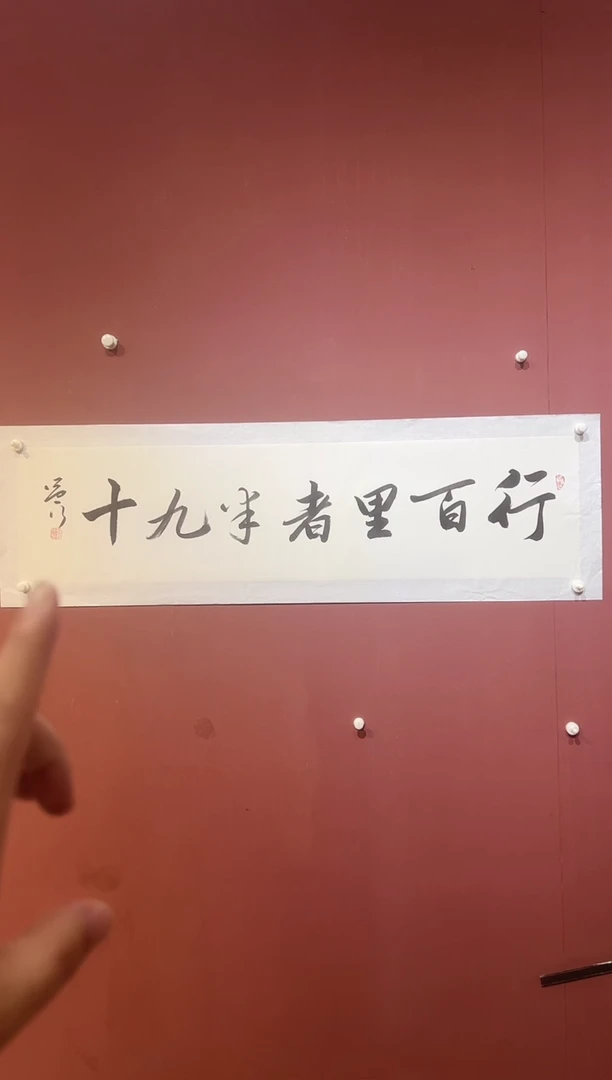 行百里者半九十